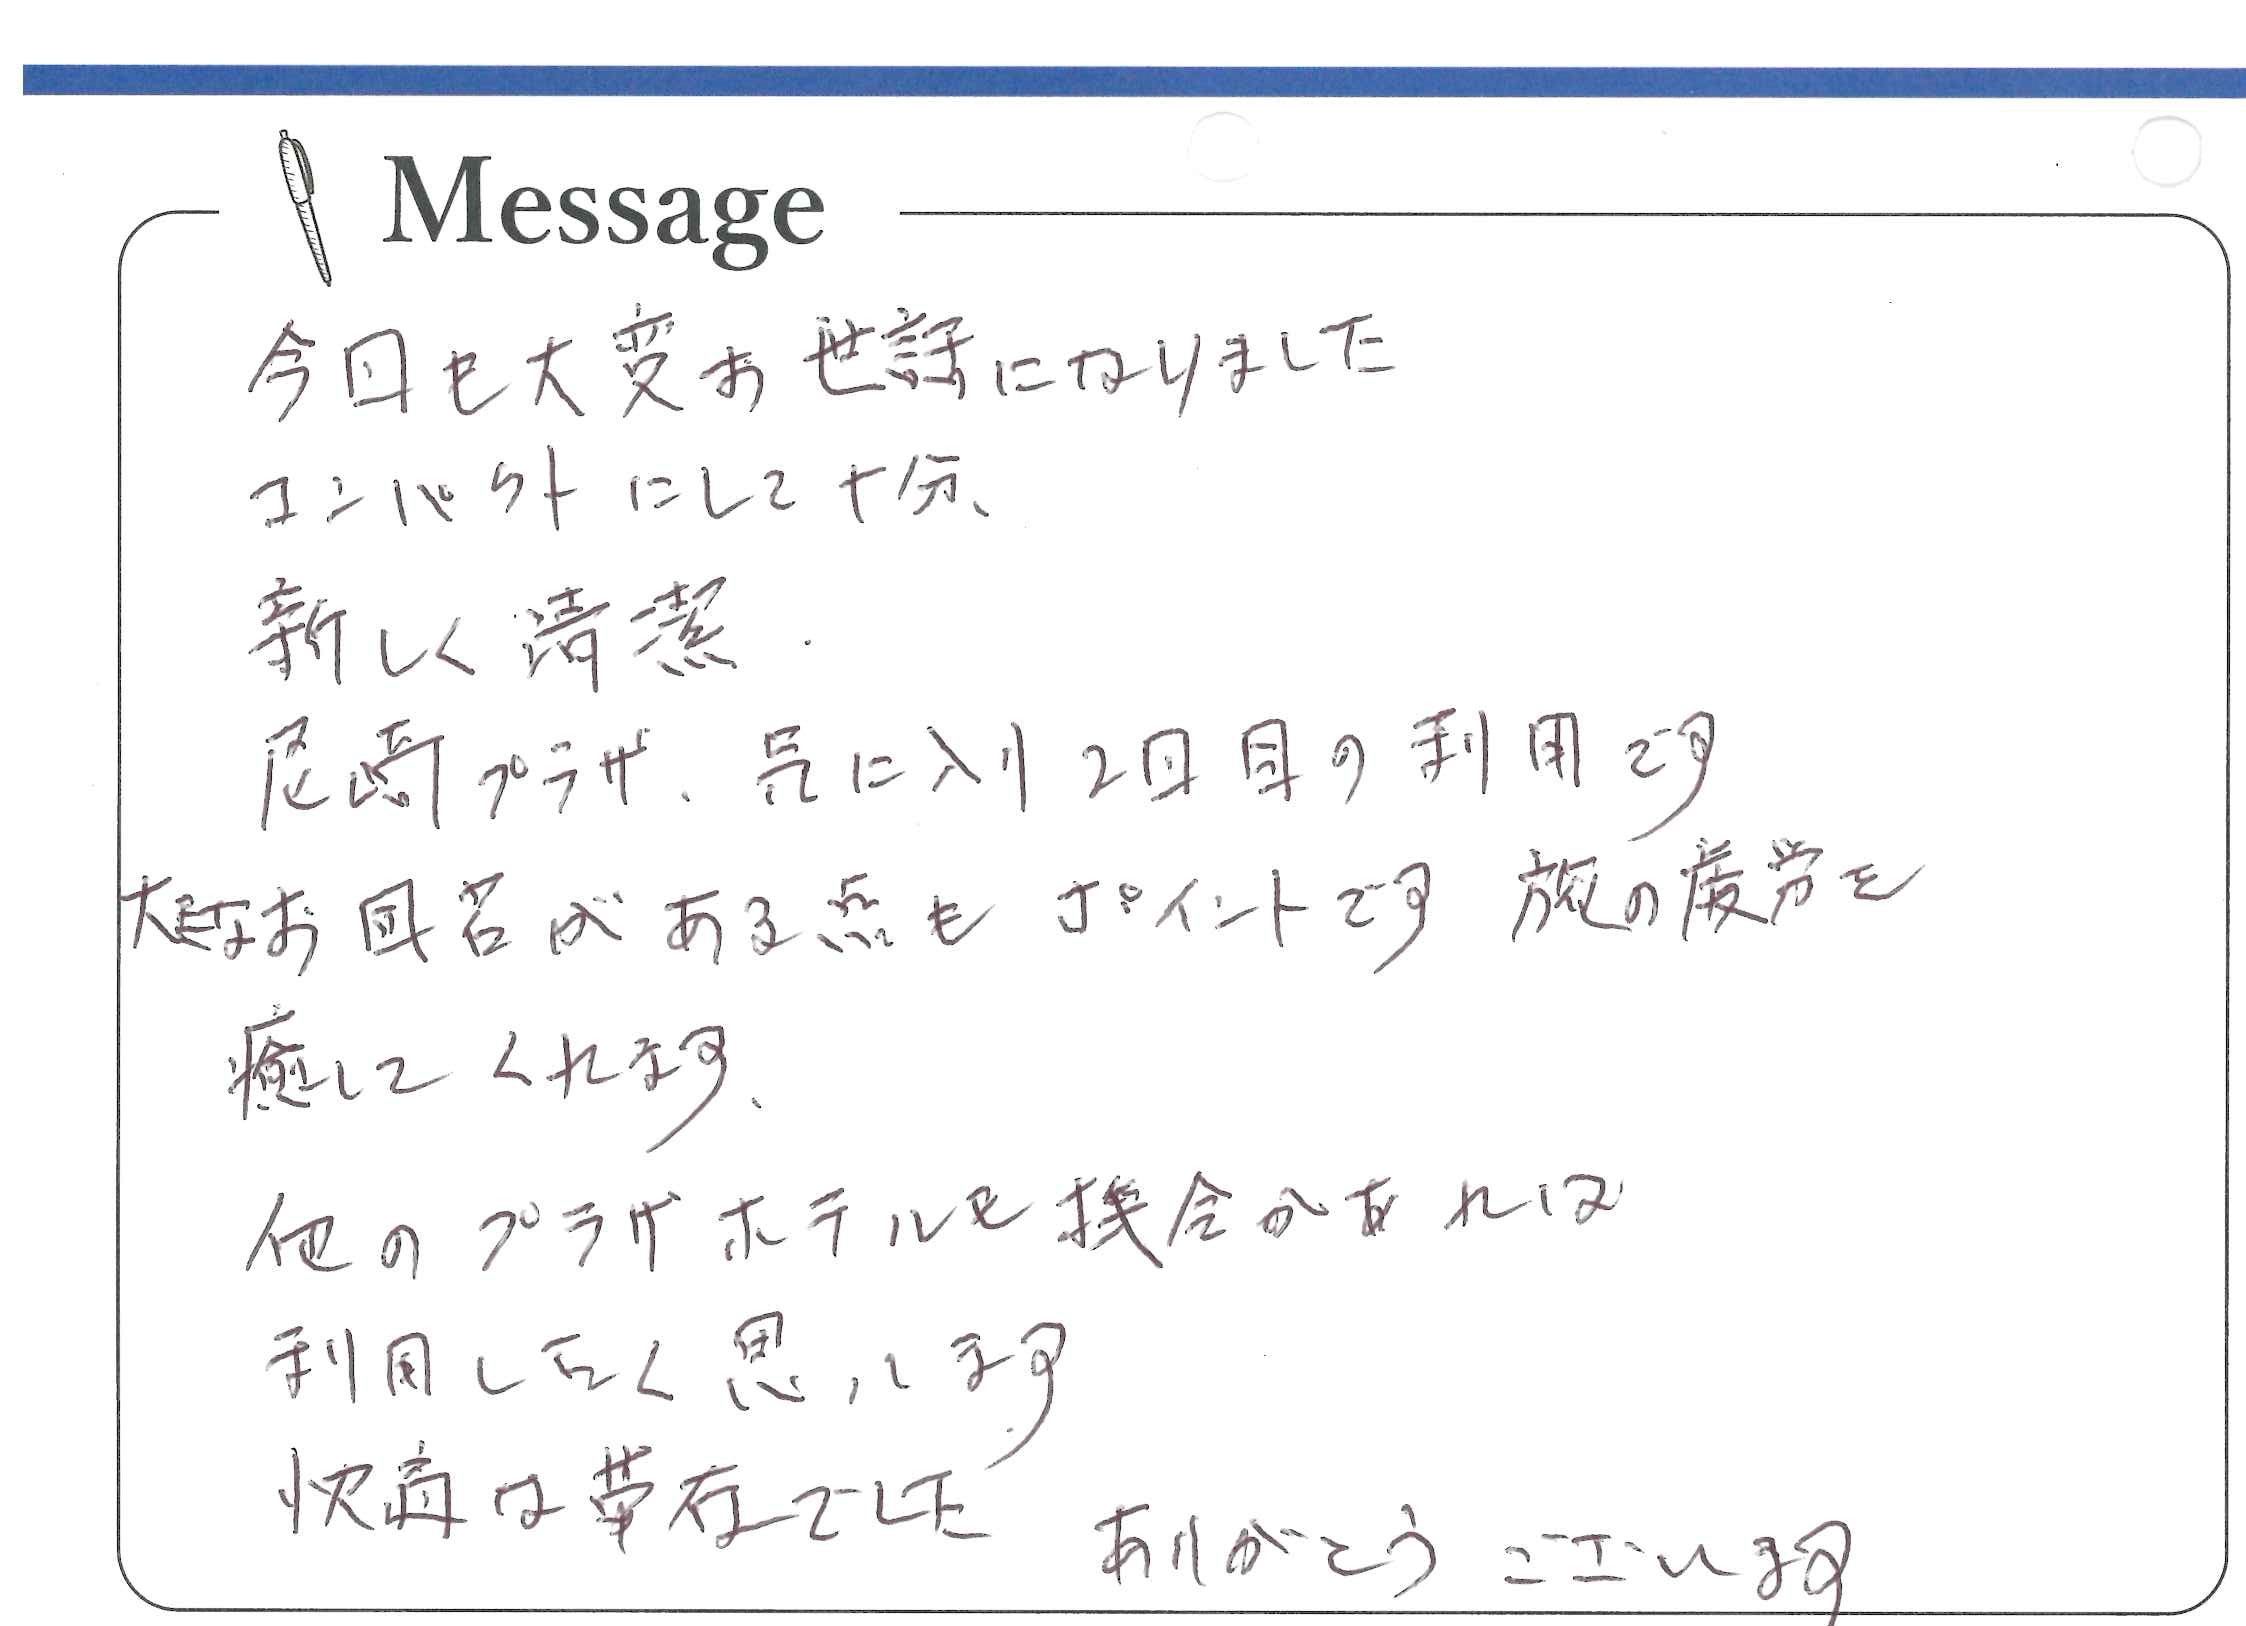 Message
今回も大変お世話になりました
コンパクトにして十分、
新しく清潔.
尼崎プラザ、気に入り2回目の利用です
大きなお風呂がある点もポイントです 旅の疲労を
癒してくれます、
他のプラザホテルも機会があれば
利用したく思います
快適な滞在でした
ありがとうございます